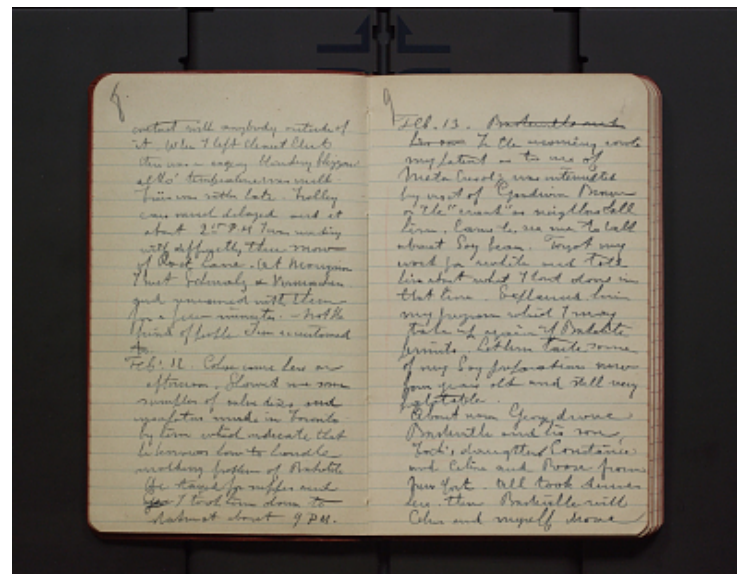 8.
contact with anybody outside of
it. When I left Chemist Club
there was a raging blinding blizzard
altho' temperature was mild
Train was rather late. Trolley
cars much delayed and at
about 2 P.M I was wading
with difficulty thru snow
of Rock Lane. At
I met Schmalz &
and remained with them
for a few minutes. - Not the
kind of people I am accustomed
to.
Feb. 12. Cohn came here in
afternoon. Showed me some
samples of valve discs and
made in Toronto
by him which indicate that
he knows how to handle
molding problem of Bakelite
He stayed for supper and
I took him down to
about 9 P.M.
9
Feb. 13. Baskerville and
his son In the morning wrote
my patent on the use of
Meta Cresol; was interrupted
by visit of Goodwin Brown
or the "crank" as neighbors call
him. Came to see me to talk
about Soy bean. Forgot my
work for awhile and told
him about what I had done in
that line. Explained him
my program which I may
take up again if Bakelite
permits. Let him taste some
of my Soy preparation now
four years old and still very
palatable.
About noon George drove
Baskerville and his son,
daughter Constance
and Celine and from
New York. All took dinner
here. then Baskerville with
Cohn and myself drove